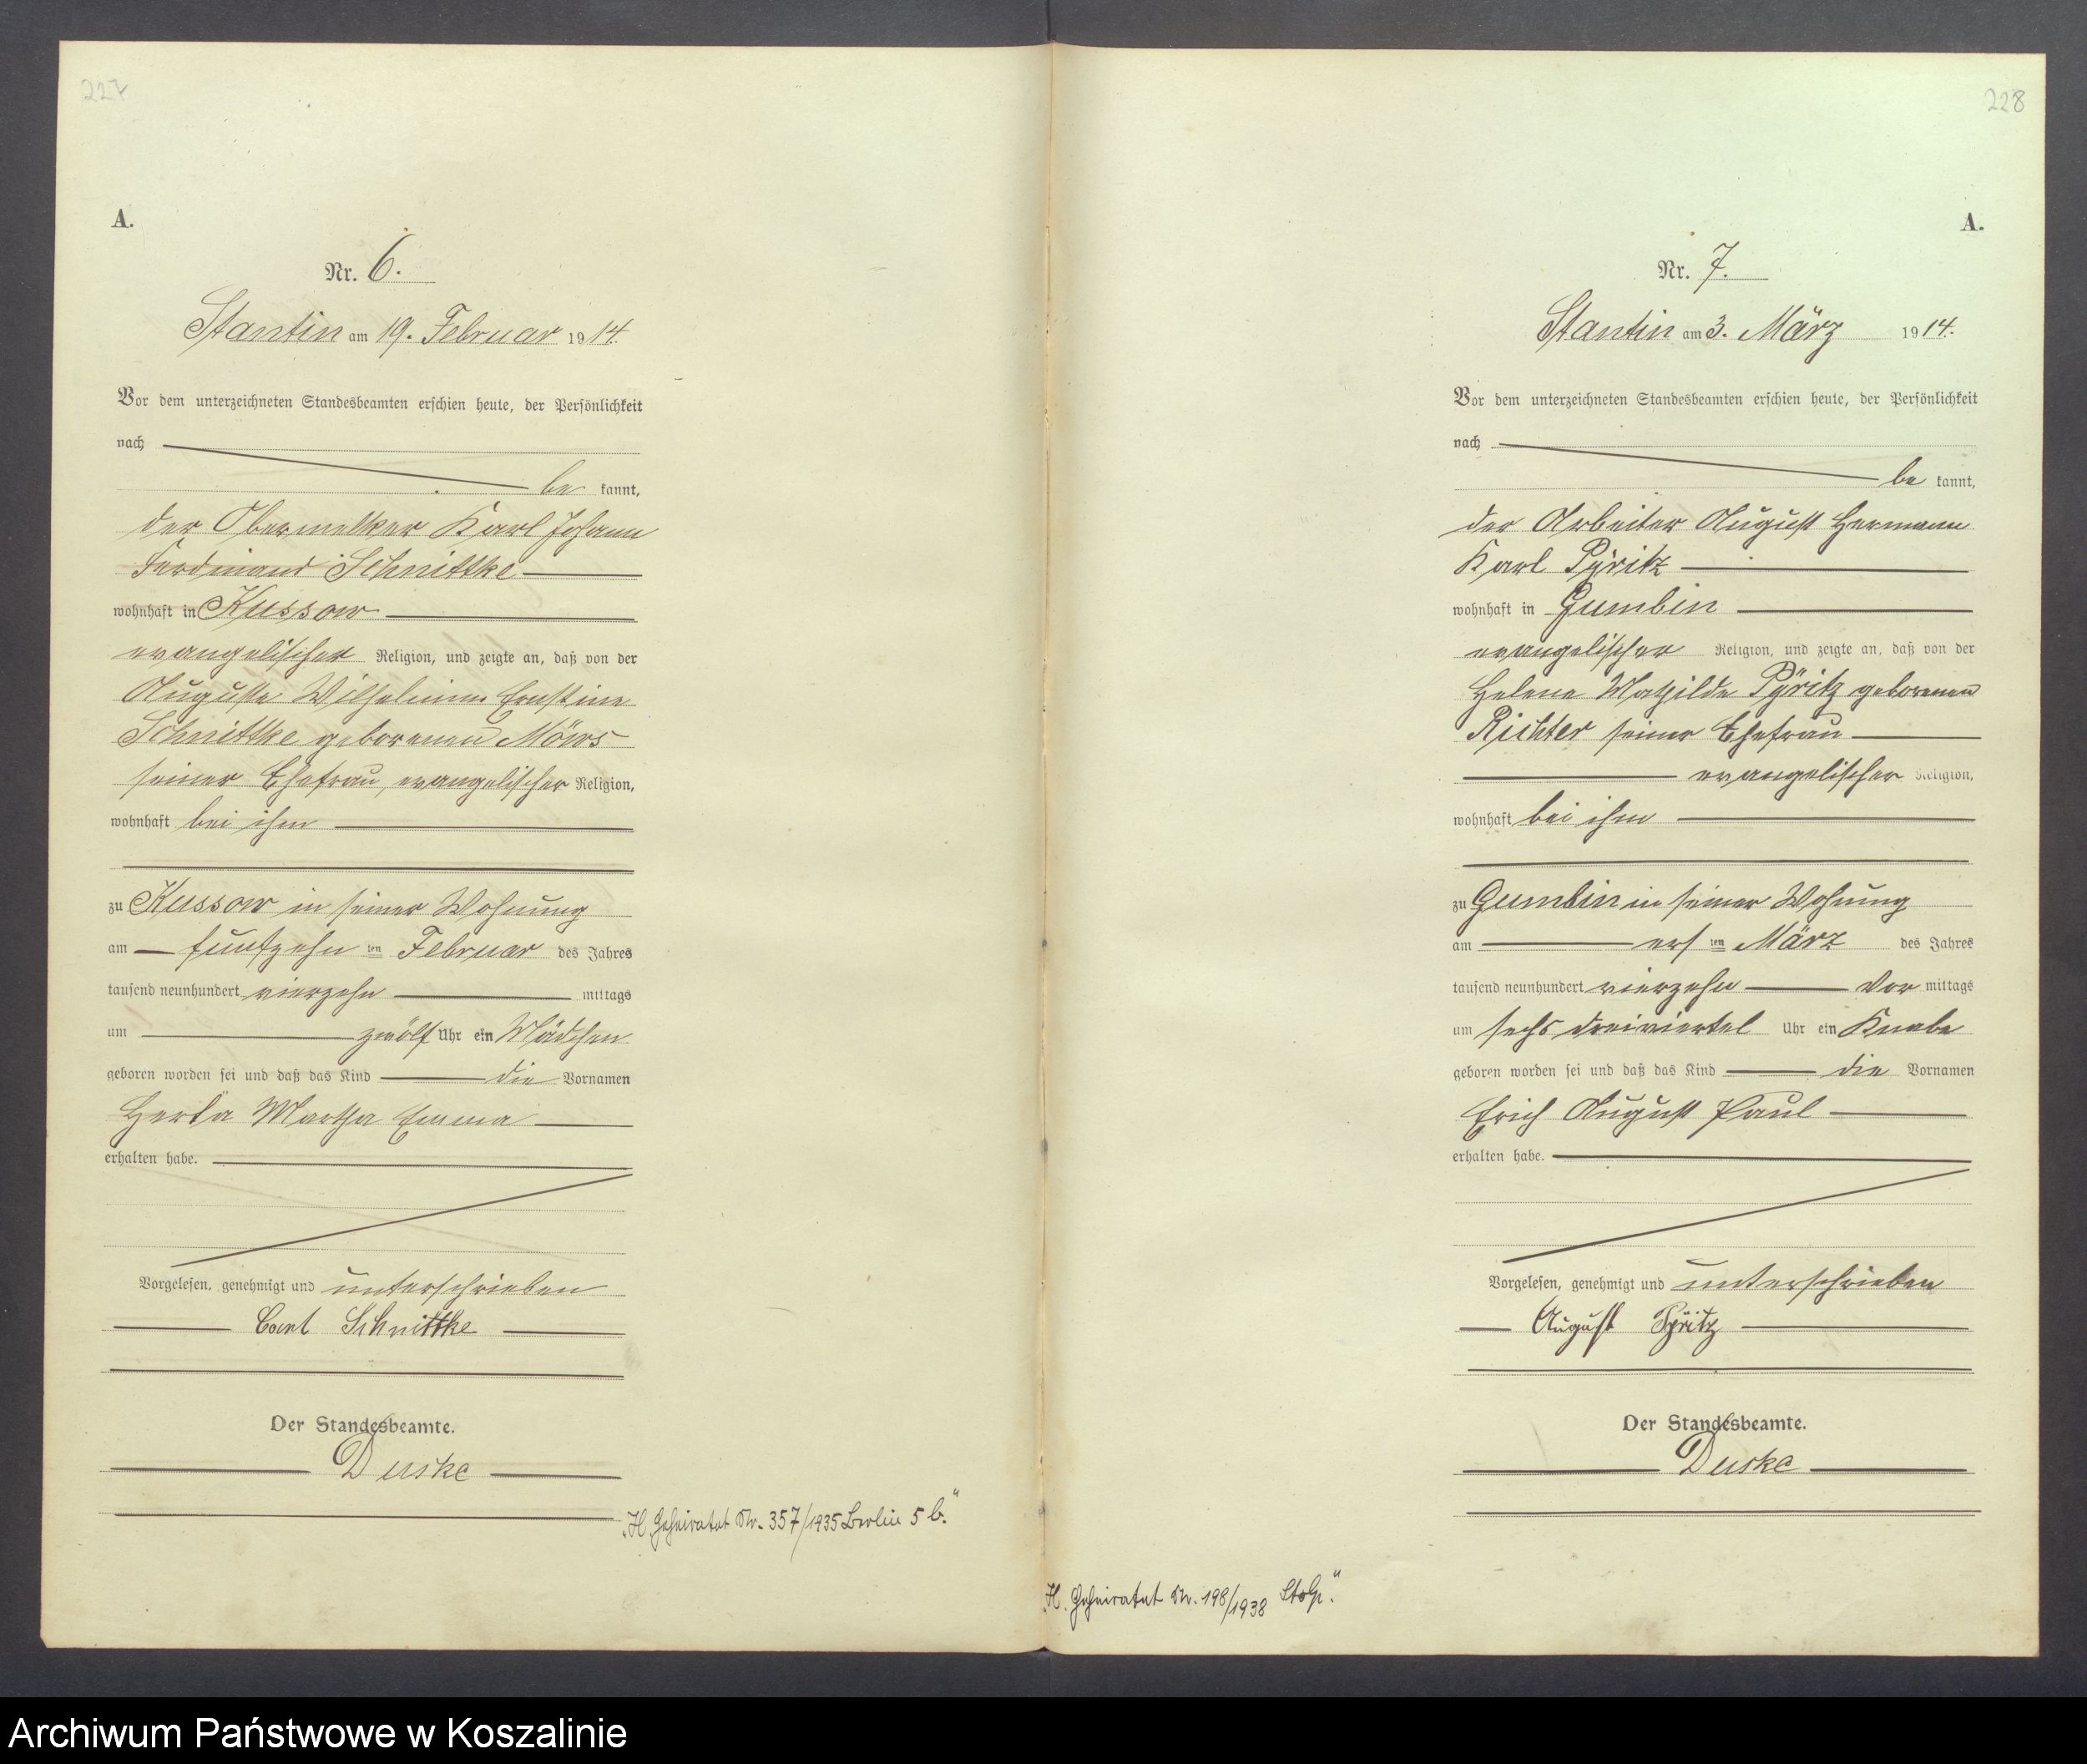 227
A.
Nr. 6.
Stantin am 19. Februar 1914.
Vor dem unterzeichneten Standesbeamten erschien heute, der Persönlichkeit
nach
be kannt,
der Obermelker Karl Johann
Ferdinand Schnittke
wohnhaft in Kussow
evangelischer Religion, und zeigte an, daß von der
Auguste Wilhelmine Ernstine
Schnittke geborenen Mörs
seiner Ehefrau, evangelischer Religion,
wohnhaft bei ihm
zu Kussow in seiner Wohnung
am fünfzehn ten Februar des Jahres
tausend neunhundert vierzehn mittags
um zwölf Uhr ein Mädchen
geboren worden sei und daß das Kind die Vornamen
Herta Martha Emma
erhalten habe.
Vorgelesen, genehmigt und unterschrieben
Carl Schnittke
Der Standesbeamte.
Duske
„H. Geheiratet Nr. 357/1935 Berlin 5 b.“
228
A.
Nr. 7.
Stantin am 3. März 1914.
Vor dem unterzeichneten Standesbeamten erschien heute, der Persönlichkeit
nach
be kannt,
der Arbeiter August Hermann
Karl Pÿritz
wohnhaft in Gumbin
evangelischer Religion, und zeigte an, daß von der
Helene Mathilde Pÿritz geborenen
Richter seiner Ehefrau
evangelischer Religion,
wohnhaft bei ihm
zu Gumbin in seiner Wohnung
am ers ten März des Jahres
tausend neunhundert vierzehn Vor mittags
um sechs dreiviertel Uhr ein Knabe
geboren worden sei und daß das Kind die Vornamen
Erich August Paul
erhalten habe.
Vorgelesen, genehmigt und unterschrieben
August Pÿritz
Der Standesbeamte.
Duske
„H. Geheiratet Nr. 198/1938 Stolp.“
Archiwum Państwowe w Koszalinie